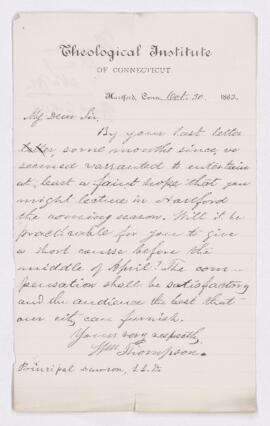 Theological Institute
OF CONNECTICUT.
Hartford, Conn., Oct. 30, 1883.
My Dear Sir,
By your last letter
some months since, we
seemed warranted to entertain
at least a faint hope that you
might lecture in Hartford
the coming season. Will it be
practicable for you to give
a short course before the
middle of April? The com-
pensation shall be satisfactory
and the audience the best that
our city can furnish.
Yours very respectfly,
Wm. Thompson.
Principal Dawson, LL.D.